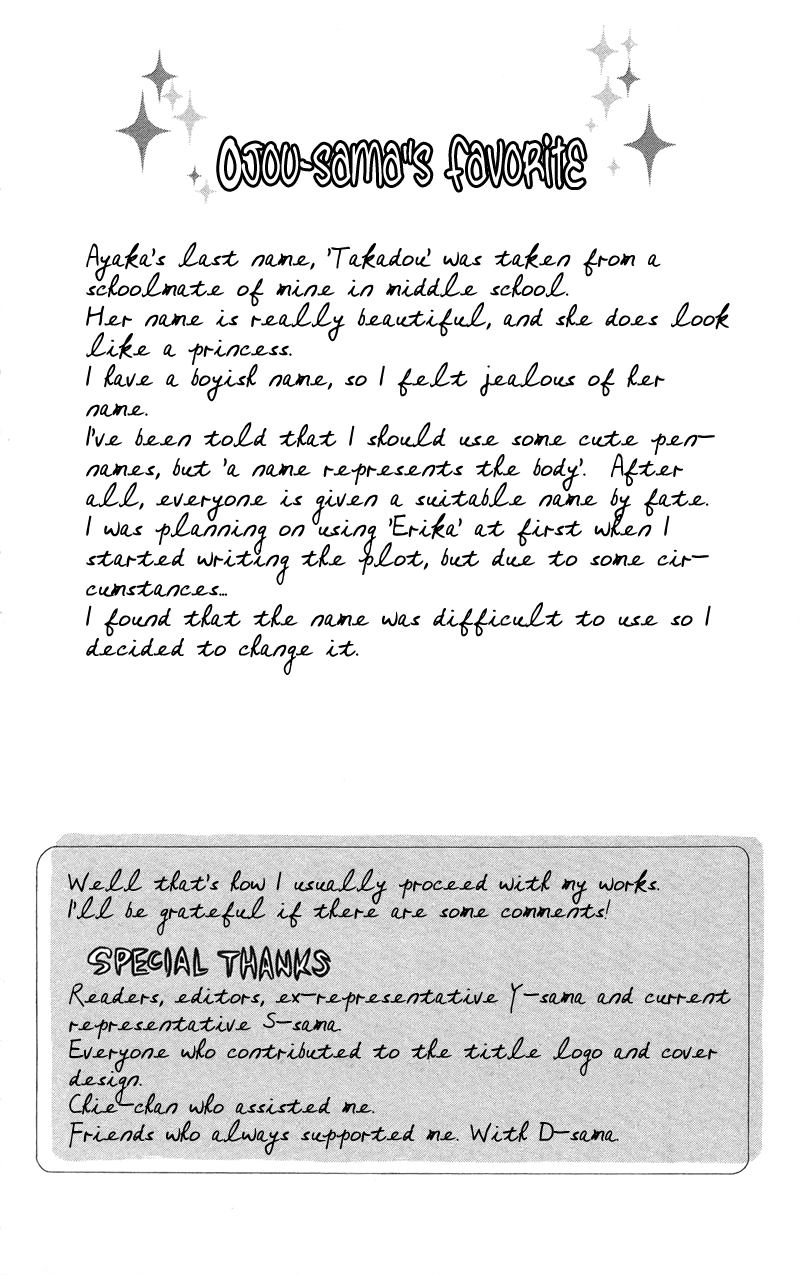 Ojou-sama"s favorite
Ayaka's last name, 'Takadou' was taken from a
schoolmate of mine in middle school.
Her name is really beautiful, and she does look
like a princess.
I have a boyish name, so I felt jealous of her
name.
I've been told that I should use some cute pen-
names, but 'a name represents the body'. After
all, everyone is given a suitable name by fate.
I was planning on using 'Erika' at first when I
started writing the plot, but due to some cir-
cumstances...
I found that the name was difficult to use so I
decided to change it.
Well that's how I usually proceed with my works.
I'll be grateful if there are some comments!
SPECIAL THANKS
Readers, editors, ex-representative Y-sama and current
representative S-sama.
Everyone who contributed to the title logo and cover
design.
Chie-chan who assisted me.
Friends who always supported me. With D-sama.